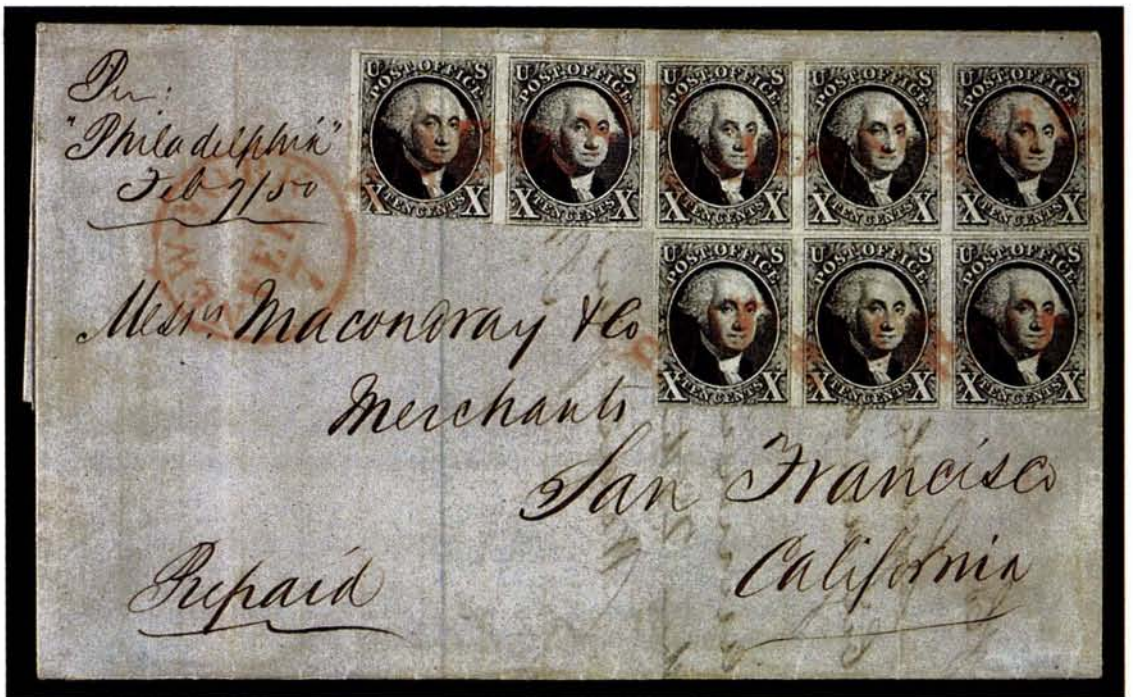 Per:
"Philadelphia"
Feb 7/50
NEW YORK
FEB
7
U POST OFFICE S
X TEN CENTS X
U POST OFFICE S
X TEN CENTS X
U POST OFFICE S
X TEN CENTS X
U POST OFFICE S
X TEN CENTS X
U POST OFFICE S
X TEN CENTS X
U POST OFFICE S
X TEN CENTS X
U POST OFFICE S
X TEN CENTS X
U POST OFFICE S
X TEN CENTS X
Messrs Macondray & Co
Merchants
San Francisco
California
Prepaid